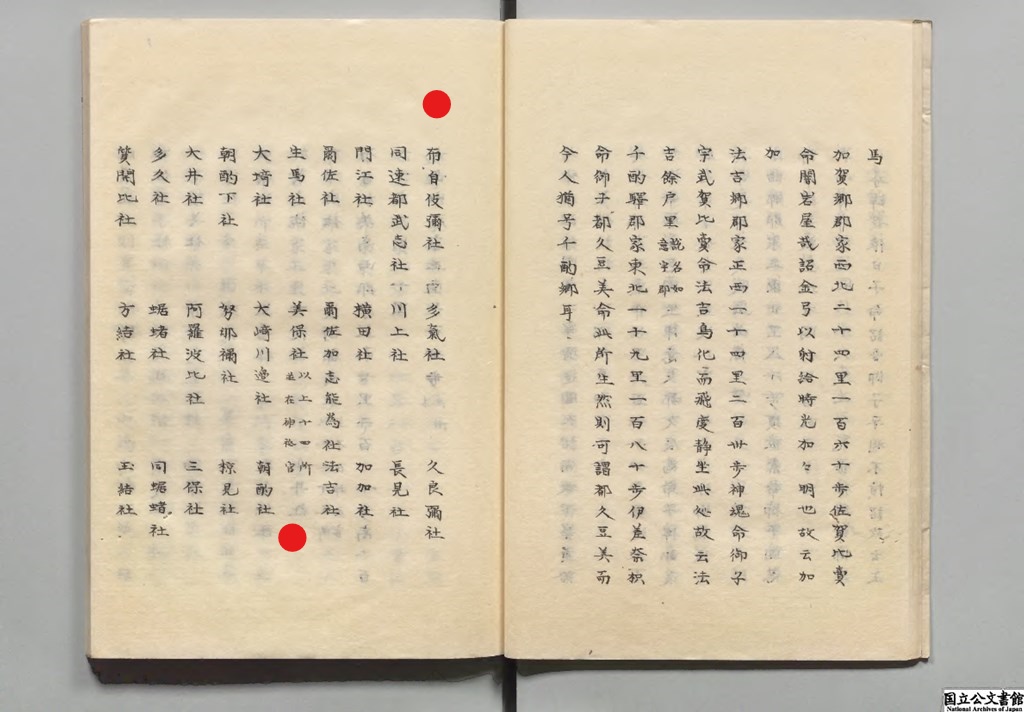 馬
加賀郷郡家西北二十四里一百六十歩佐賀比賣
命闇岩屋哉詔金弓以射給時光加々明也故云加
加
法吉郷郡家正西一十四里二百卅歩神魂命御子
宇武賀比賣命法吉鳥化而飛度静坐此処故云法
吉餘戸里説名如意宇郡
千酌驛郡家東北一十九里一百八十歩伊差奈枳
命御子都久豆美命此所生然則可謂都久豆美而
今人猶号千酌郷耳
布自伎彌社 多氣社 久良彌社
同速都武志社 川上社 長見社
門江社 横田社 加加社
爾佐社 爾佐加志能為社 法吉社
生馬社 美保社以上一十四所並在神祇官
大埼社 大﨑川邉社 朝酌社
朝酌下社 努那彌社 椋見社
大井社 阿羅波比社 三保社
多久社 蜛蝫社 同蜛蝫社
質留比社 方結社 玉結社
国立公文書館
National Archives of Japan